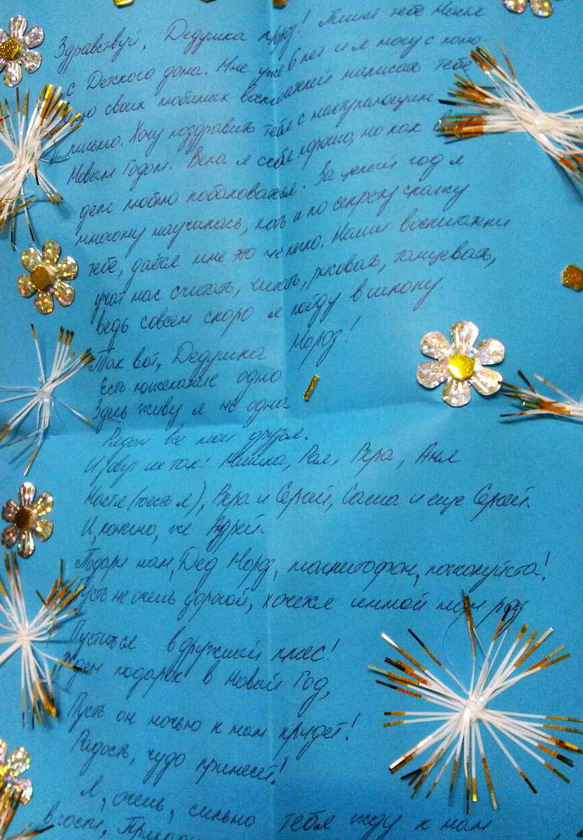 Здравствуй, Дедушка Мороз! Пишет тебе Настя
с Детского дома. Мне уже 6 лет и я могу с помо-
своих любимых написать тебе
письмо. Хочу поздравить тебя с наступающим
Новым Годом. Вела я себя хорошо, но как
дети люблю побаловаться. За целый год я
многому научилась, хоть и по секрету скажу
тебе, даётся мне это не легко. Наши воспитатели
учат нас считать, читать, рисовать, танцевать,
ведь совсем скоро я пойду в школу.
Так вот, Дедушка Мороз!
Есть пожелание одно
Здесь живу я не одна
Рядом все мои друзья.
Зовут их так: Мишка, Рая, Вера, Аня
Настя (тоесть я), Вера и Сергей, Саша и еще Сергей.
И, конечно, же Андрей.
Подари нам, Дед Мороз, магнитофон, пожалуйста!
Пусть не очень дорогой, хочется зимой нам раз
Пуститься в дружный пляс!
Ждем подарок в Новый Год,
Пусть он ночью к нам придет!
Радость, чудо принесет!
Я, очень, сильно тебя жду к нам
в гости,